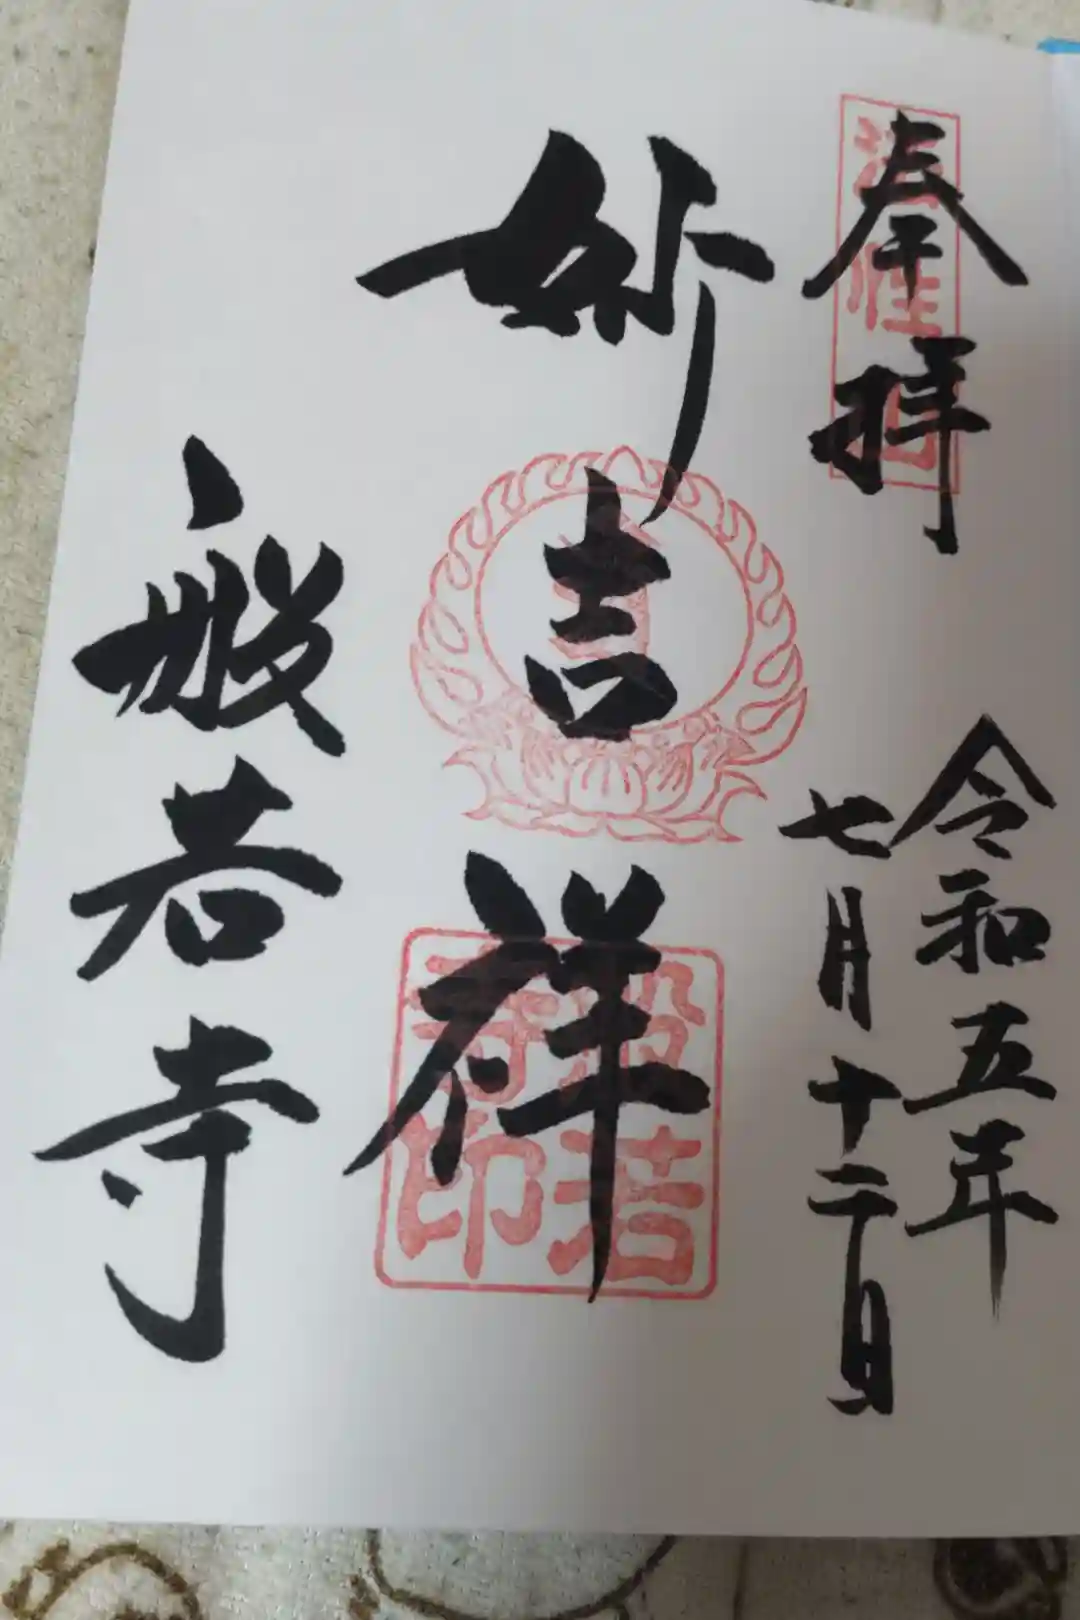 奉拝
令和五年
七月十二日
妙吉祥
般若寺
法性山
般若
寺印